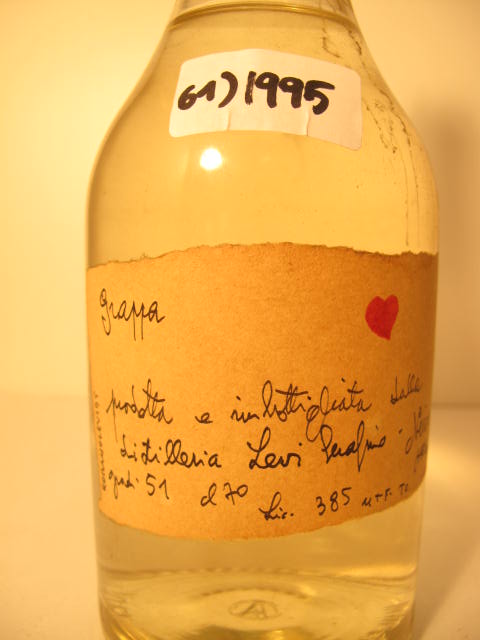 61) 1995
grappa
prodotta e imbottigliata dalla
distilleria Levi Serafino -
gradi 51 cl 70 Lic. 385 UTF. TO